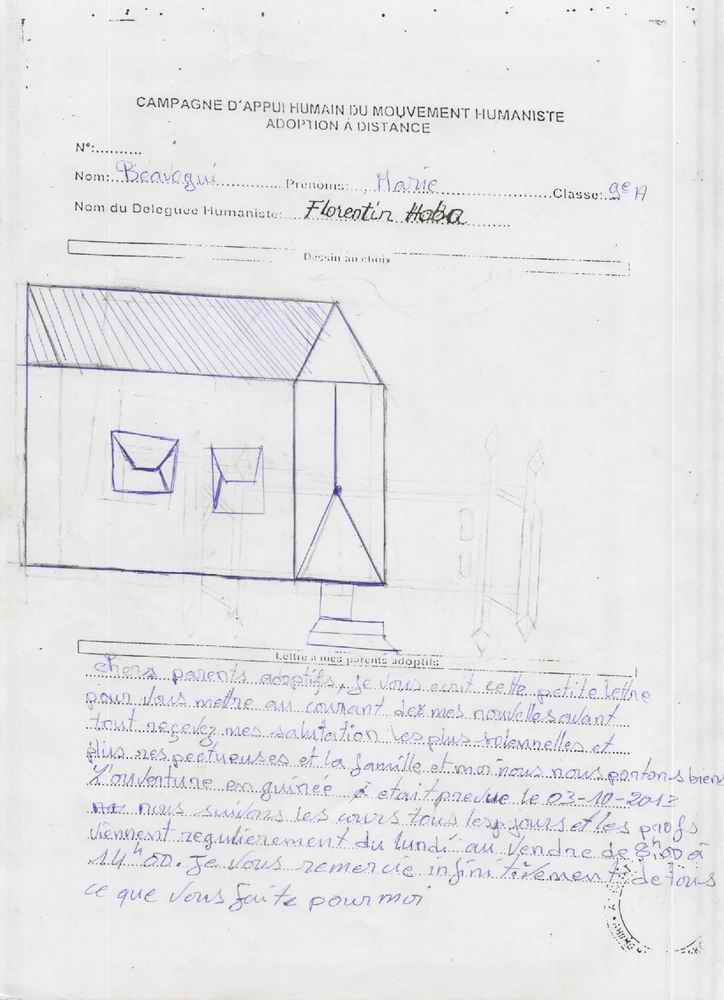 CAMPAGNE D'APPUI HUMAIN DU MOUVEMENT HUMANISTE
ADOPTION A DISTANCE
N°:..........
Nom: Beavogui Prénoms: Marie Classe: 9e A
Nom du Deleguée Humaniste: Florentin Haba
Dessin au choix
Lettre à mes parents adoptifs
chers parents adoptifs, je vous ecrit cette petite lettre
pour vous mettre au courant de mes nouvelles avant
tout reçevez mes salutation les plus solennelles et
plus respectueuses et la famille et moi nous nous portons biens
L'ouverture en guinée à etait prevue le 03-10-2013
nous suivons les cours tous les jours et les profs
viennent regulièrement du lundi au vendre de 8h00 à
14h00. je vous remercie infinitivement de tous
ce que vous faite pour moi